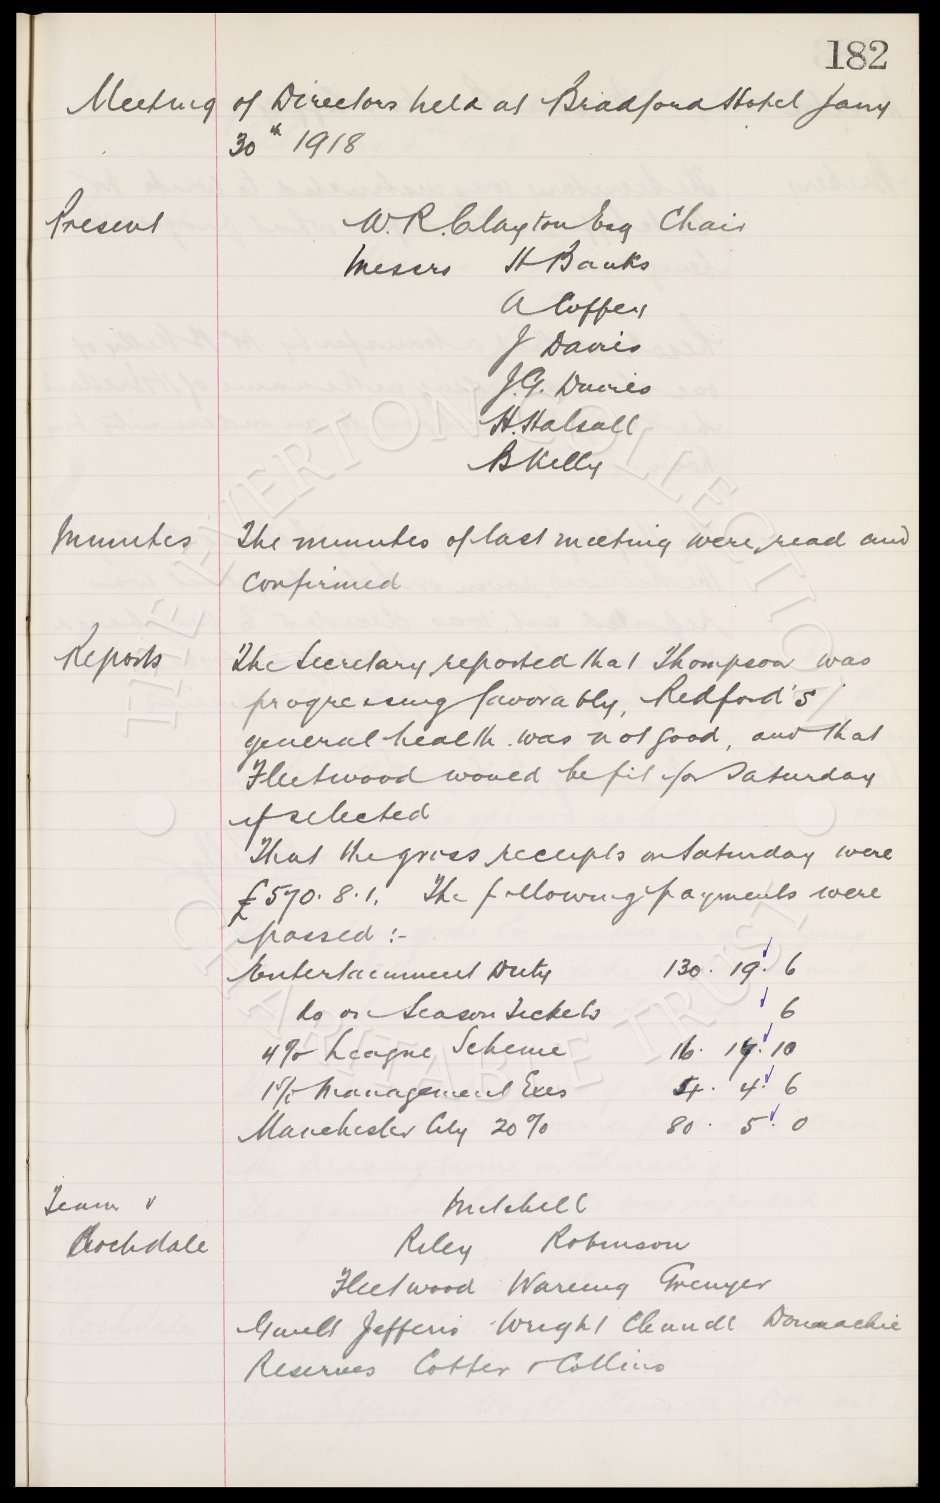 182
Meeting of Directors held at Bradford Hotel Jany
30th 1918
Present W.R. Clayton Esq Chair
Messrs H Banks
A Coffey
J Davies
J.G. Davies
H. Halsall
B Kelly
Minutes The minutes of last meeting were read and
confirmed
Reports The Secretary reported that Thompson was
progressing favorably, Redford's
general health was not good, and that
Fleetwood would be fit for Saturday
if selected
That the gross receipts on Saturday were
£570.8.1. The following payments were
passed :-
Entertainment Duty 130. 19. 6
do on Season Tickets 6
4% League Scheme 16. 17. 10
1% Management Exes 4. 4. 6
Manchester City 20% 80. 5. 0
Team v Mitchell
Rochdale Riley Robinson
Fleetwood Wareing Grenyer
Jefferis Wright Clennell Donnachie
Reserves Cotter & Collins
THE EVERTON COLLECTION
CHARITABLE TRUST